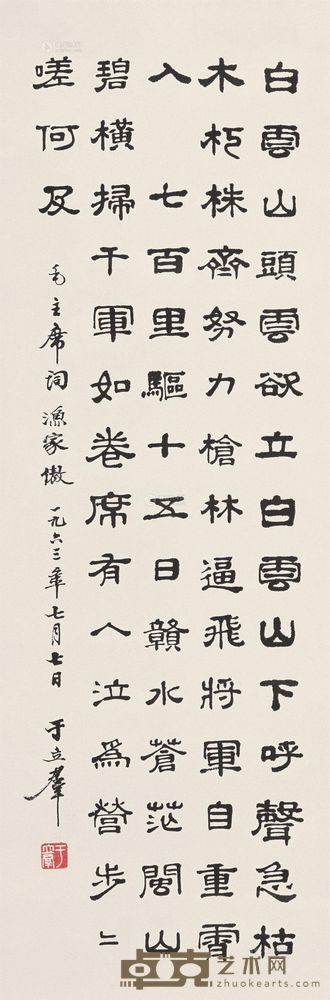 白雲山頭雲欲立白雲山下呼聲急枯
木朽株齊努力槍林逼飛將軍自重霄
入 七百里驅十五日贛水蒼茫閩山
碧橫掃千軍如卷席有人泣為營步二
嗟何及
毛主席詞漁家傲 一九六三年七月七日 于立群
于立群
卓克艺术网
zhuokearts.com